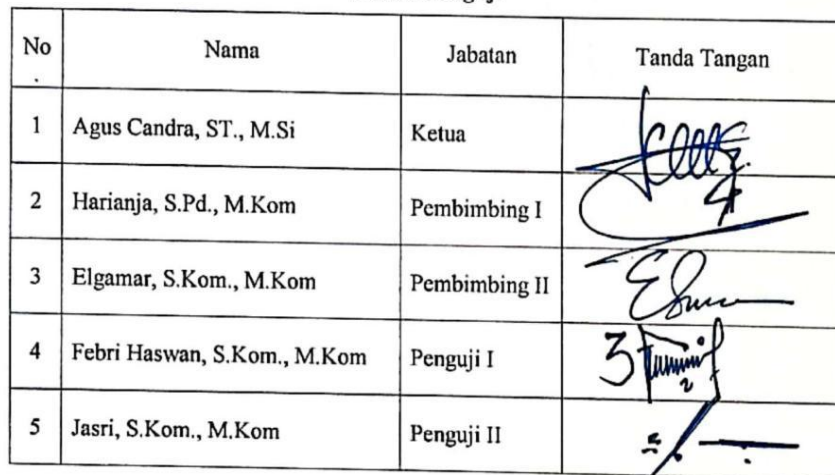 No Nama Jabatan Tanda Tangan
1 Agus Candra, ST., M.Si Ketua
2 Harianja, S.Pd., M.Kom Pembimbing I
3 Elgamar, S.Kom., M.Kom Pembimbing II
4 Febri Haswan, S.Kom., M.Kom Penguji I
5 Jasri, S.Kom., M.Kom Penguji II